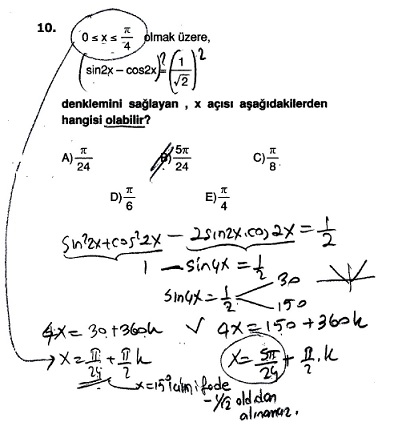 10. 0 ≤ x ≤ π/4 olmak üzere,
(sin2x – cos2x)² = (1/√2)²
denklemini sağlayan , x açısı aşağıdakilerden
hangisi olabilir?
A) π/24 B) 5π/24 C) π/8
D) π/6 E) π/4
sin²2x + cos²2x – 2sin2x.cos2x = 1/2
1 – sin4x = 1/2
sin4x = 1/2 30 150
4x = 30 + 360k ∨ 4x = 150 + 360k
x = π/24 + π/2 k x = 5π/24 + π/2 . k
x = 15° ifade
– 1/√2 olduğundan
alınamaz.